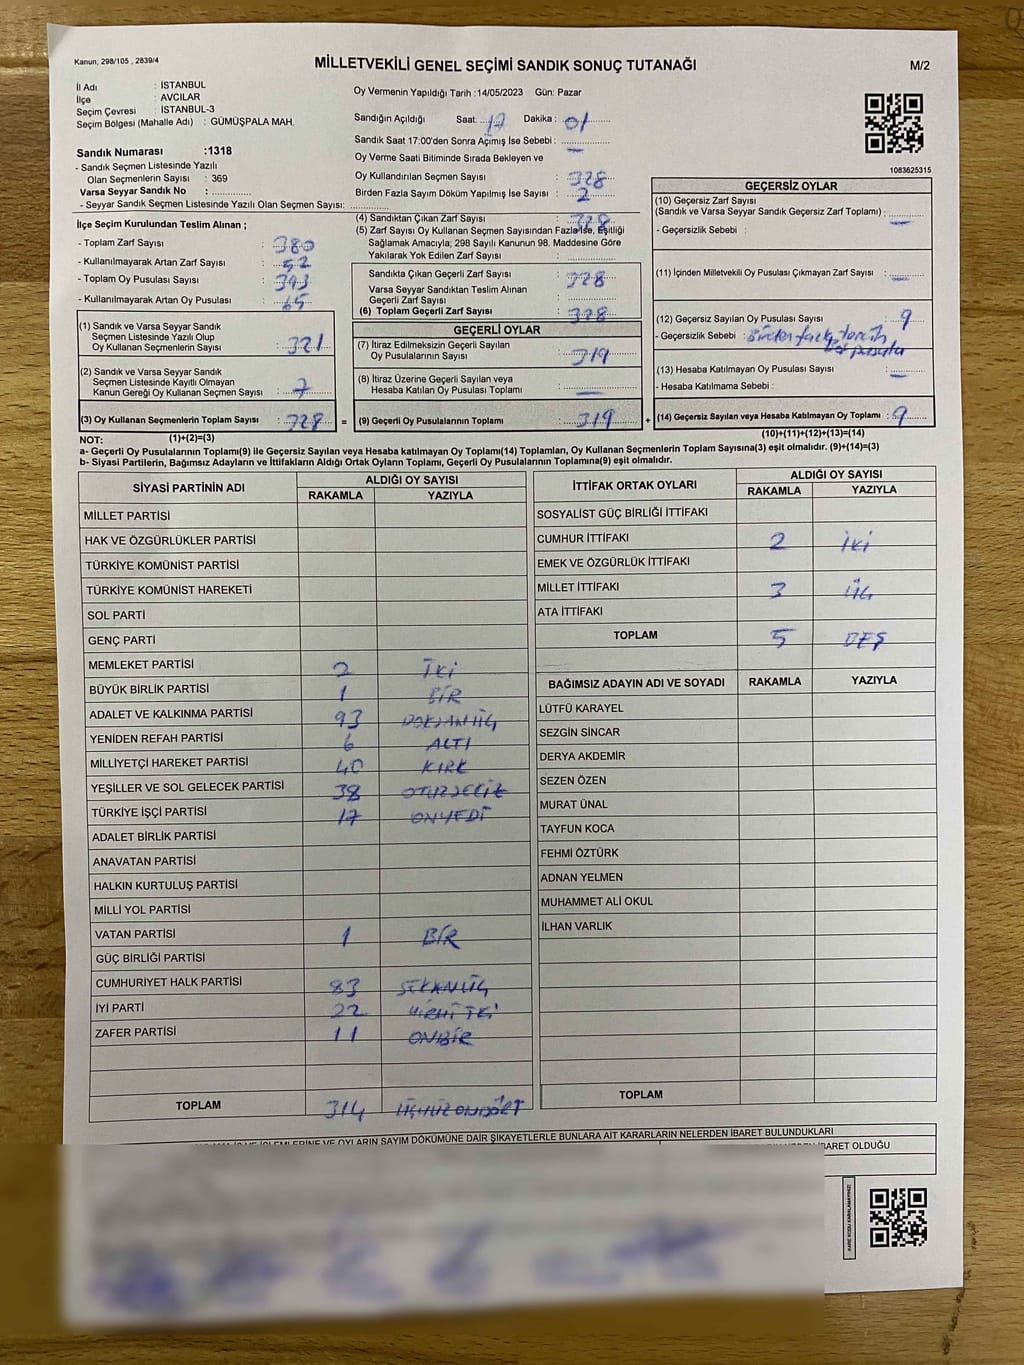 Kanun; 298/105 , 2839/4
MİLLETVEKİLİ GENEL SEÇİMİ SANDIK SONUÇ TUTANAĞI
M/2
İl Adı : İSTANBUL
İlçe : AVCILAR
Seçim Çevresi : İSTANBUL-3
Seçim Bölgesi (Mahalle Adı) : GÜMÜŞPALA MAH.
Sandık Numarası :1318
- Sandık Seçmen Listesinde Yazılı
Olan Seçmenlerin Sayısı : 369
Varsa Seyyar Sandık No :
- Seyyar Sandık Seçmen Listesinde Yazılı Olan Seçmen Sayısı:
Oy Vermenin Yapıldığı Tarih :14/05/2023 Gün: Pazar
Sandığın Açıldığı Saat: 17 Dakika : 01
Sandık Saat 17:00'den Sonra Açımış İse Sebebi : —
Oy Verme Saati Bitiminde Sırada Bekleyen ve
Oy Kullandırılan Seçmen Sayısı : 328
Birden Fazla Sayım Döküm Yapılmış İse Sayısı : 2
1083625315
İlçe Seçim Kurulundan Teslim Alınan ;
- Toplam Zarf Sayısı : 380
- Kullanılmayarak Artan Zarf Sayısı : 52
- Toplam Oy Pusulası Sayısı : 393
- Kullanılmayarak Artan Oy Pusulası : 65
(1) Sandık ve Varsa Seyyar Sandık
Seçmen Listesinde Yazılı Olup
Oy Kullanan Seçmenlerin Sayısı : 321
(2) Sandık ve Varsa Seyyar Sandık
Seçmen Listesinde Kayıtlı Olmayan
Kanun Gereği Oy Kullanan Seçmen Sayısı : 7
(3) Oy Kullanan Seçmenlerin Toplam Sayısı : 328 =
(4) Sandıktan Çıkan Zarf Sayısı : 328
(5) Zarf Sayısı Oy Kullanan Seçmen Sayısından Fazla İse, Eşitliği
Sağlamak Amacıyla; 298 Sayılı Kanunun 98. Maddesine Göre
Yakılarak Yok Edilen Zarf Sayısı :
Sandıkta Çıkan Geçerli Zarf Sayısı : 328
Varsa Seyyar Sandıktan Teslim Alınan
Geçerli Zarf Sayısı :
(6) Toplam Geçerli Zarf Sayısı : 328
GEÇERLİ OYLAR
(7) İtiraz Edilmeksizin Geçerli Sayılan
Oy Pusulalarının Sayısı : 319
(8) İtiraz Üzerine Geçerli Sayılan veya
Hesaba Katılan Oy Pusulaları Toplamı : —
(9) Geçerli Oy Pusulalarının Toplamı : 319 +
GEÇERSİZ OYLAR
(10) Geçersiz Zarf Sayısı
(Sandık ve Varsa Seyyar Sandık Geçersiz Zarf Toplamı) : —
- Geçersizlik Sebebi :
(11) İçinden Milletvekili Oy Pusulası Çıkmayan Zarf Sayısı : —
(12) Geçersiz Sayılan Oy Pusulası Sayısı : 9
- Geçersizlik Sebebi : Birden fazla tercih
(13) Hesaba Katılmayan Oy Pusulası Sayısı : —
- Hesaba Katılmama Sebebi :
(14) Geçersiz Sayılan veya Hesaba Katılmayan Oy Toplamı : 9
NOT: (1)+(2)=(3) (10)+(11)+(12)+(13)=(14)
a- Geçerli Oy Pusulalarının Toplamı(9) ile Geçersiz Sayılan veya Hesaba katılmayan Oy Toplamı(14) Toplamları, Oy Kullanan Seçmenlerin Toplam Sayısına(3) eşit olmalıdır. (9)+(14)=(3)
b- Siyasi Partilerin, Bağımsız Adayların ve İttifakların Aldığı Ortak Oyların Toplamı, Geçerli Oy Pusulalarının Toplamına(9) eşit olmalıdır.
SİYASİ PARTİNİN ADI ALDIĞI OY SAYISI
RAKAMLA YAZIYLA
MİLLET PARTİSİ
HAK VE ÖZGÜRLÜKLER PARTİSİ
TÜRKİYE KOMÜNİST PARTİSİ
TÜRKİYE KOMÜNİST HAREKETİ
SOL PARTİ
GENÇ PARTİ
MEMLEKET PARTİSİ 2 İKİ
BÜYÜK BİRLİK PARTİSİ 1 BİR
ADALET VE KALKINMA PARTİSİ 93 DOKSANÜÇ
YENİDEN REFAH PARTİSİ 6 ALTI
MİLLİYETÇİ HAREKET PARTİSİ 40 KIRK
YEŞİLLER VE SOL GELECEK PARTİSİ 38 OTUZSEKİZ
TÜRKİYE İŞÇİ PARTİSİ 17 ONYEDİ
ADALET BİRLİK PARTİSİ
ANAVATAN PARTİSİ
HALKIN KURTULUŞ PARTİSİ
MİLLİ YOL PARTİSİ
VATAN PARTİSİ 1 BİR
GÜÇ BİRLİĞİ PARTİSİ
CUMHURİYET HALK PARTİSİ 83 SEKSNÜÇ
İYİ PARTİ 22 YİRMİ İKİ
ZAFER PARTİSİ 11 ONBİR
TOPLAM 314 ÜÇYÜZ ONDÖRT
İTTİFAK ORTAK OYLARI ALDIĞI OY SAYISI
RAKAMLA YAZIYLA
SOSYALİST GÜÇ BİRLİĞİ İTTİFAKI
CUMHUR İTTİFAKI 2 İKİ
EMEK VE ÖZGÜRLÜK İTTİFAKI
MİLLET İTTİFAKI 3 ÜÇ
ATA İTTİFAKI
TOPLAM 5 BEŞ
BAĞIMSIZ ADAYIN ADI VE SOYADI RAKAMLA YAZIYLA
LÜTFÜ KARAYEL
SEZGİN SİNCAR
DERYA AKDEMİR
SEZEN ÖZEN
MURAT ÜNAL
TAYFUN KOCA
FEHMİ ÖZTÜRK
ADNAN YELMEN
MUHAMMET ALİ OKUL
İLHAN VARLIK
TOPLAM
İŞLEMLERİNE VE OYLARIN SAYIM DÖKÜMÜNE DAİR ŞİKAYETLERLE BUNLARA AİT KARARLARIN NELERDEN İBARET BULUNDUKLARI
İBARET OLDUĞU
KARE KODU KARALAMAYINIZ!